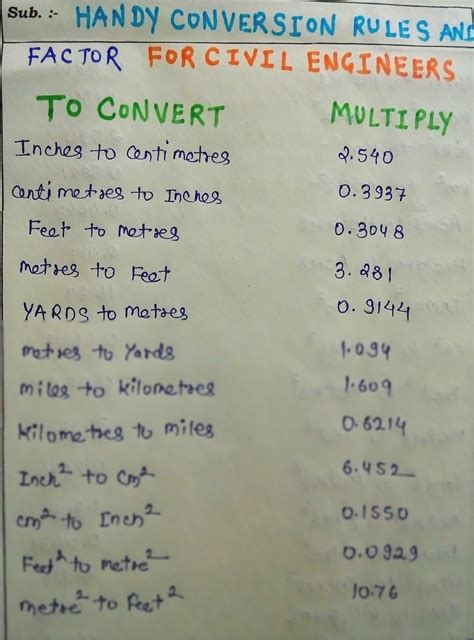 Sub. :- HANDY CONVERSION RULES AND
FACTOR FOR CIVIL ENGINEERS
TO CONVERT MULTIPLY
Inches to centimetres 2.540
centimetres to Inches 0.3937
Feet to metres 0.3048
metres to Feet 3.281
YARDS to metres 0.9144
metres to Yards 1.094
miles to kilometres 1.609
kilometres to miles 0.6214
Inch² to cm² 6.452
cm² to Inch² 0.1550
Feet² to metre² 0.0929
metre² to feet² 10.76